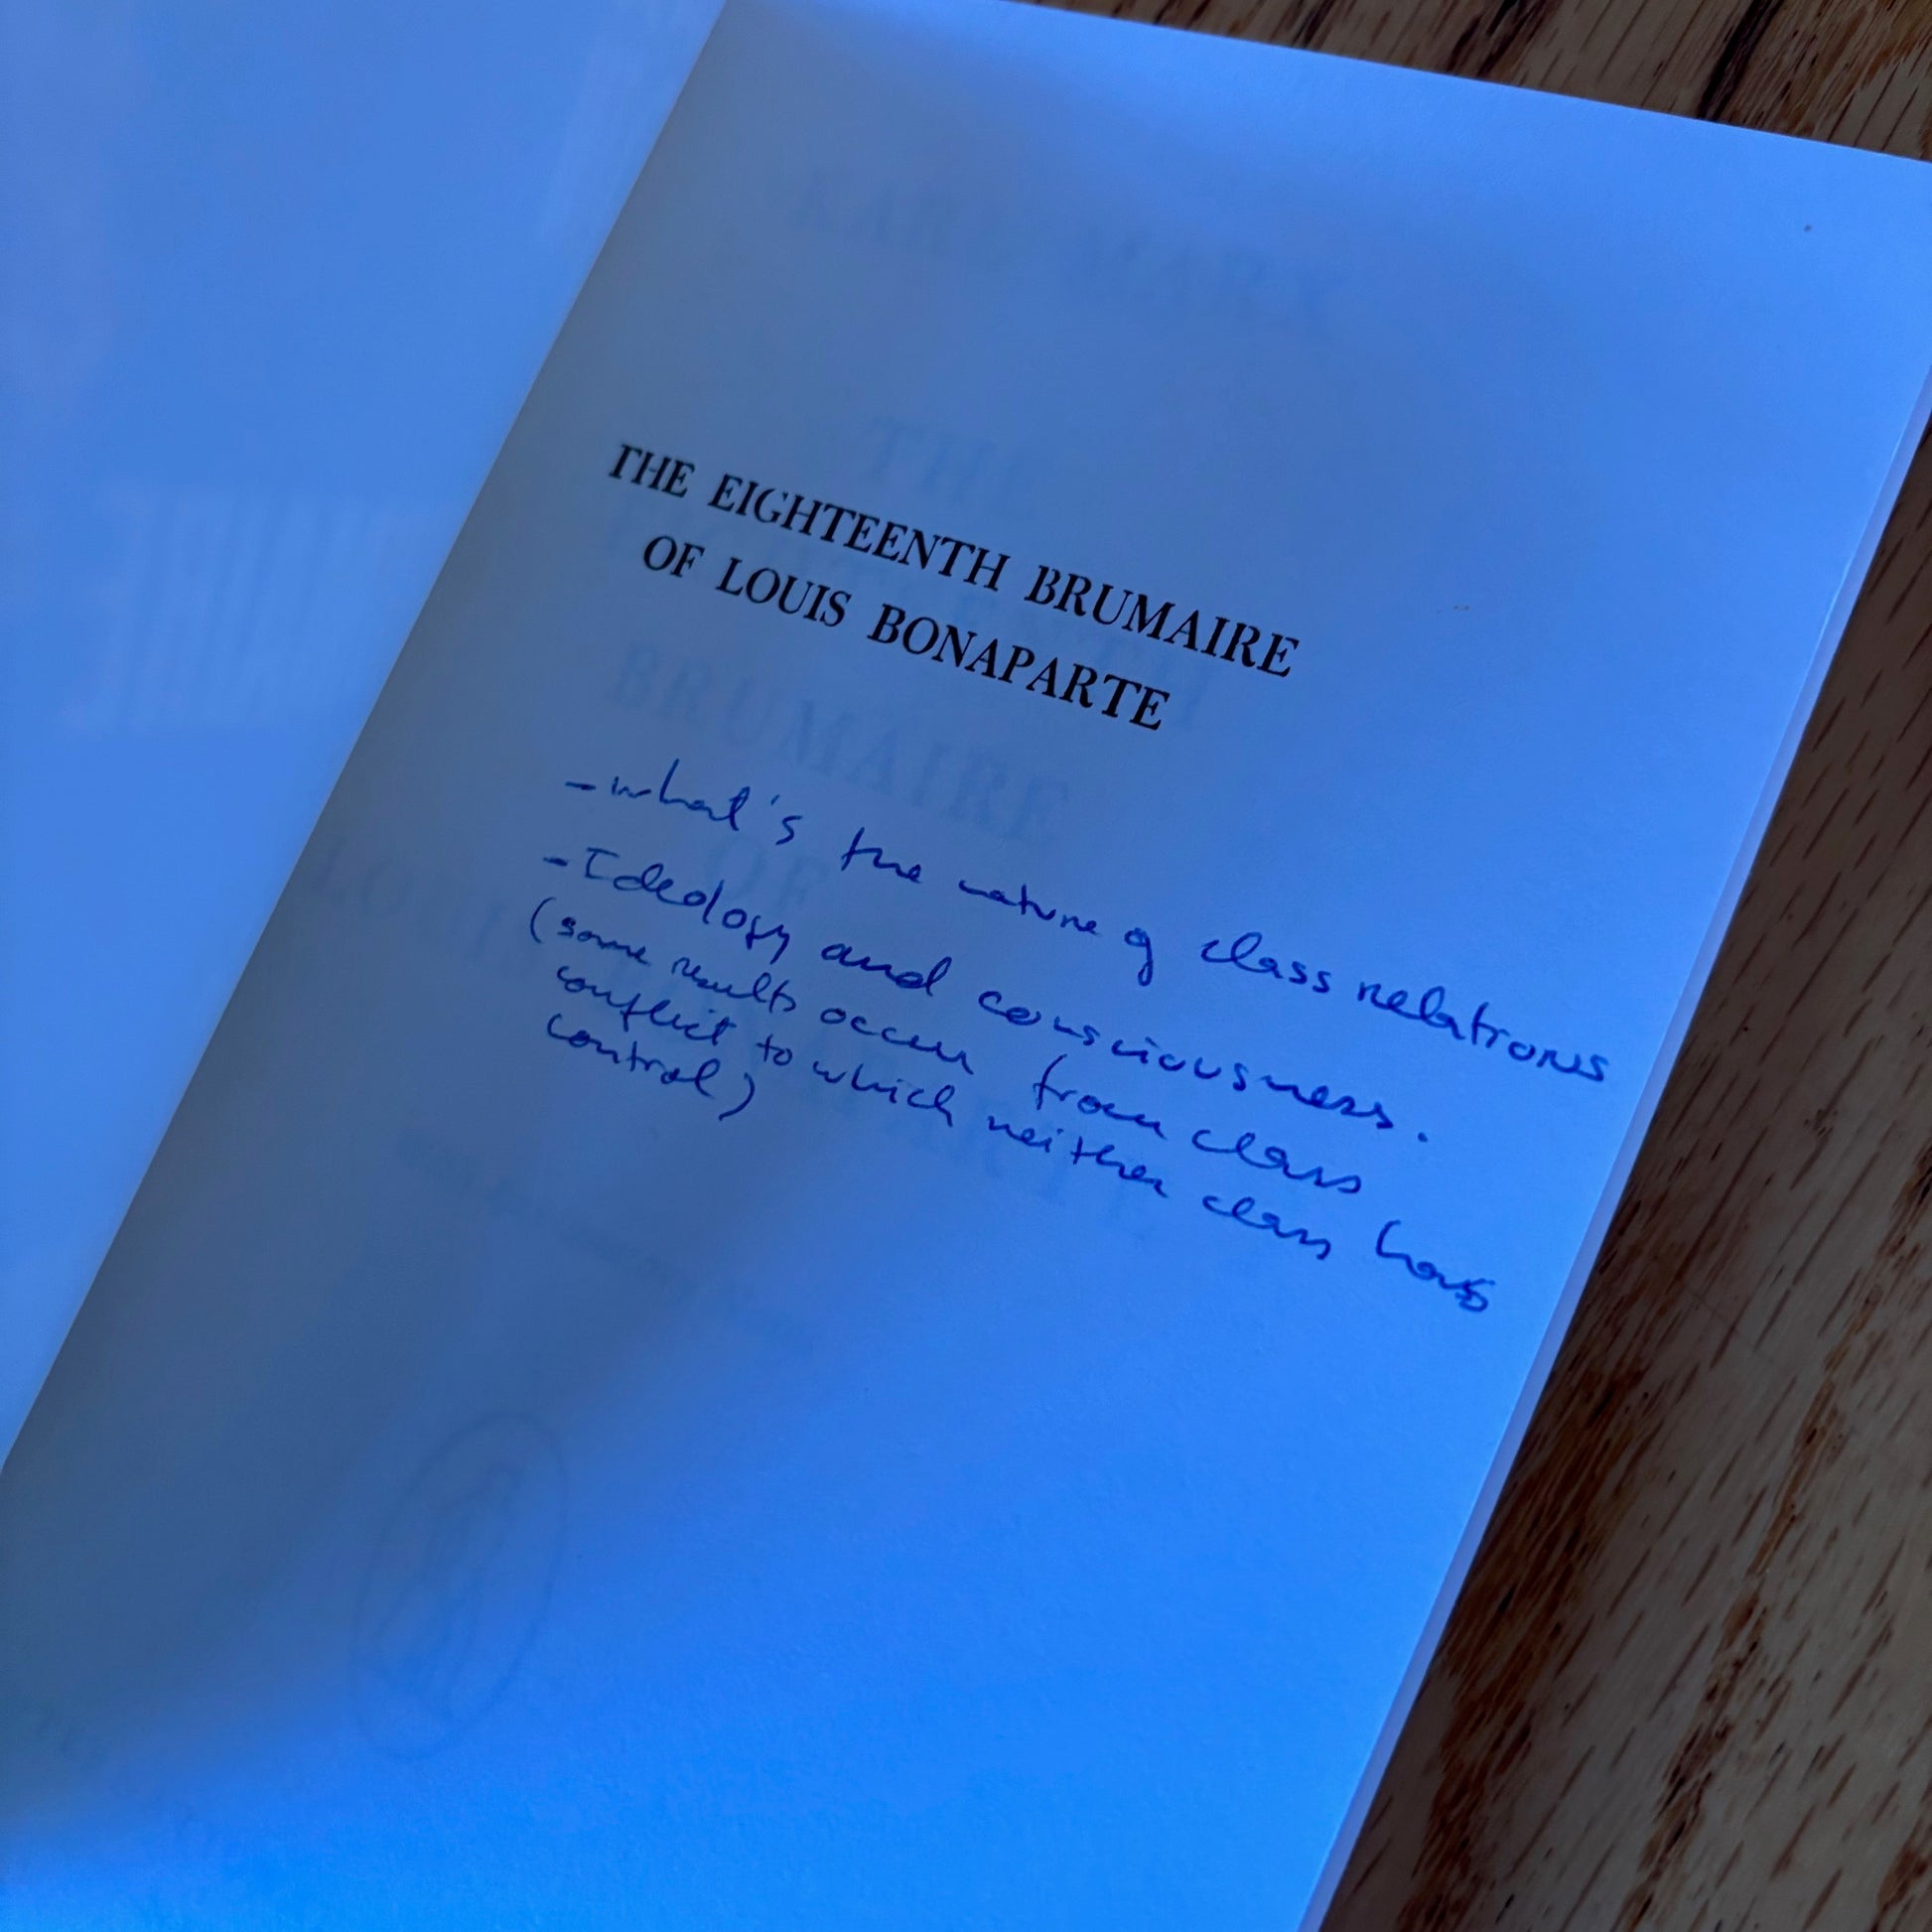 THE EIGHTEENTH BRUMAIRE
OF LOUIS BONAPARTE
- what's the nature of class relations
- Ideology and consciousness.
(some results occur from class
conflict to which neither class has
control)
KARL MARX
THE
BRUMAIRE
OF
LOUIS